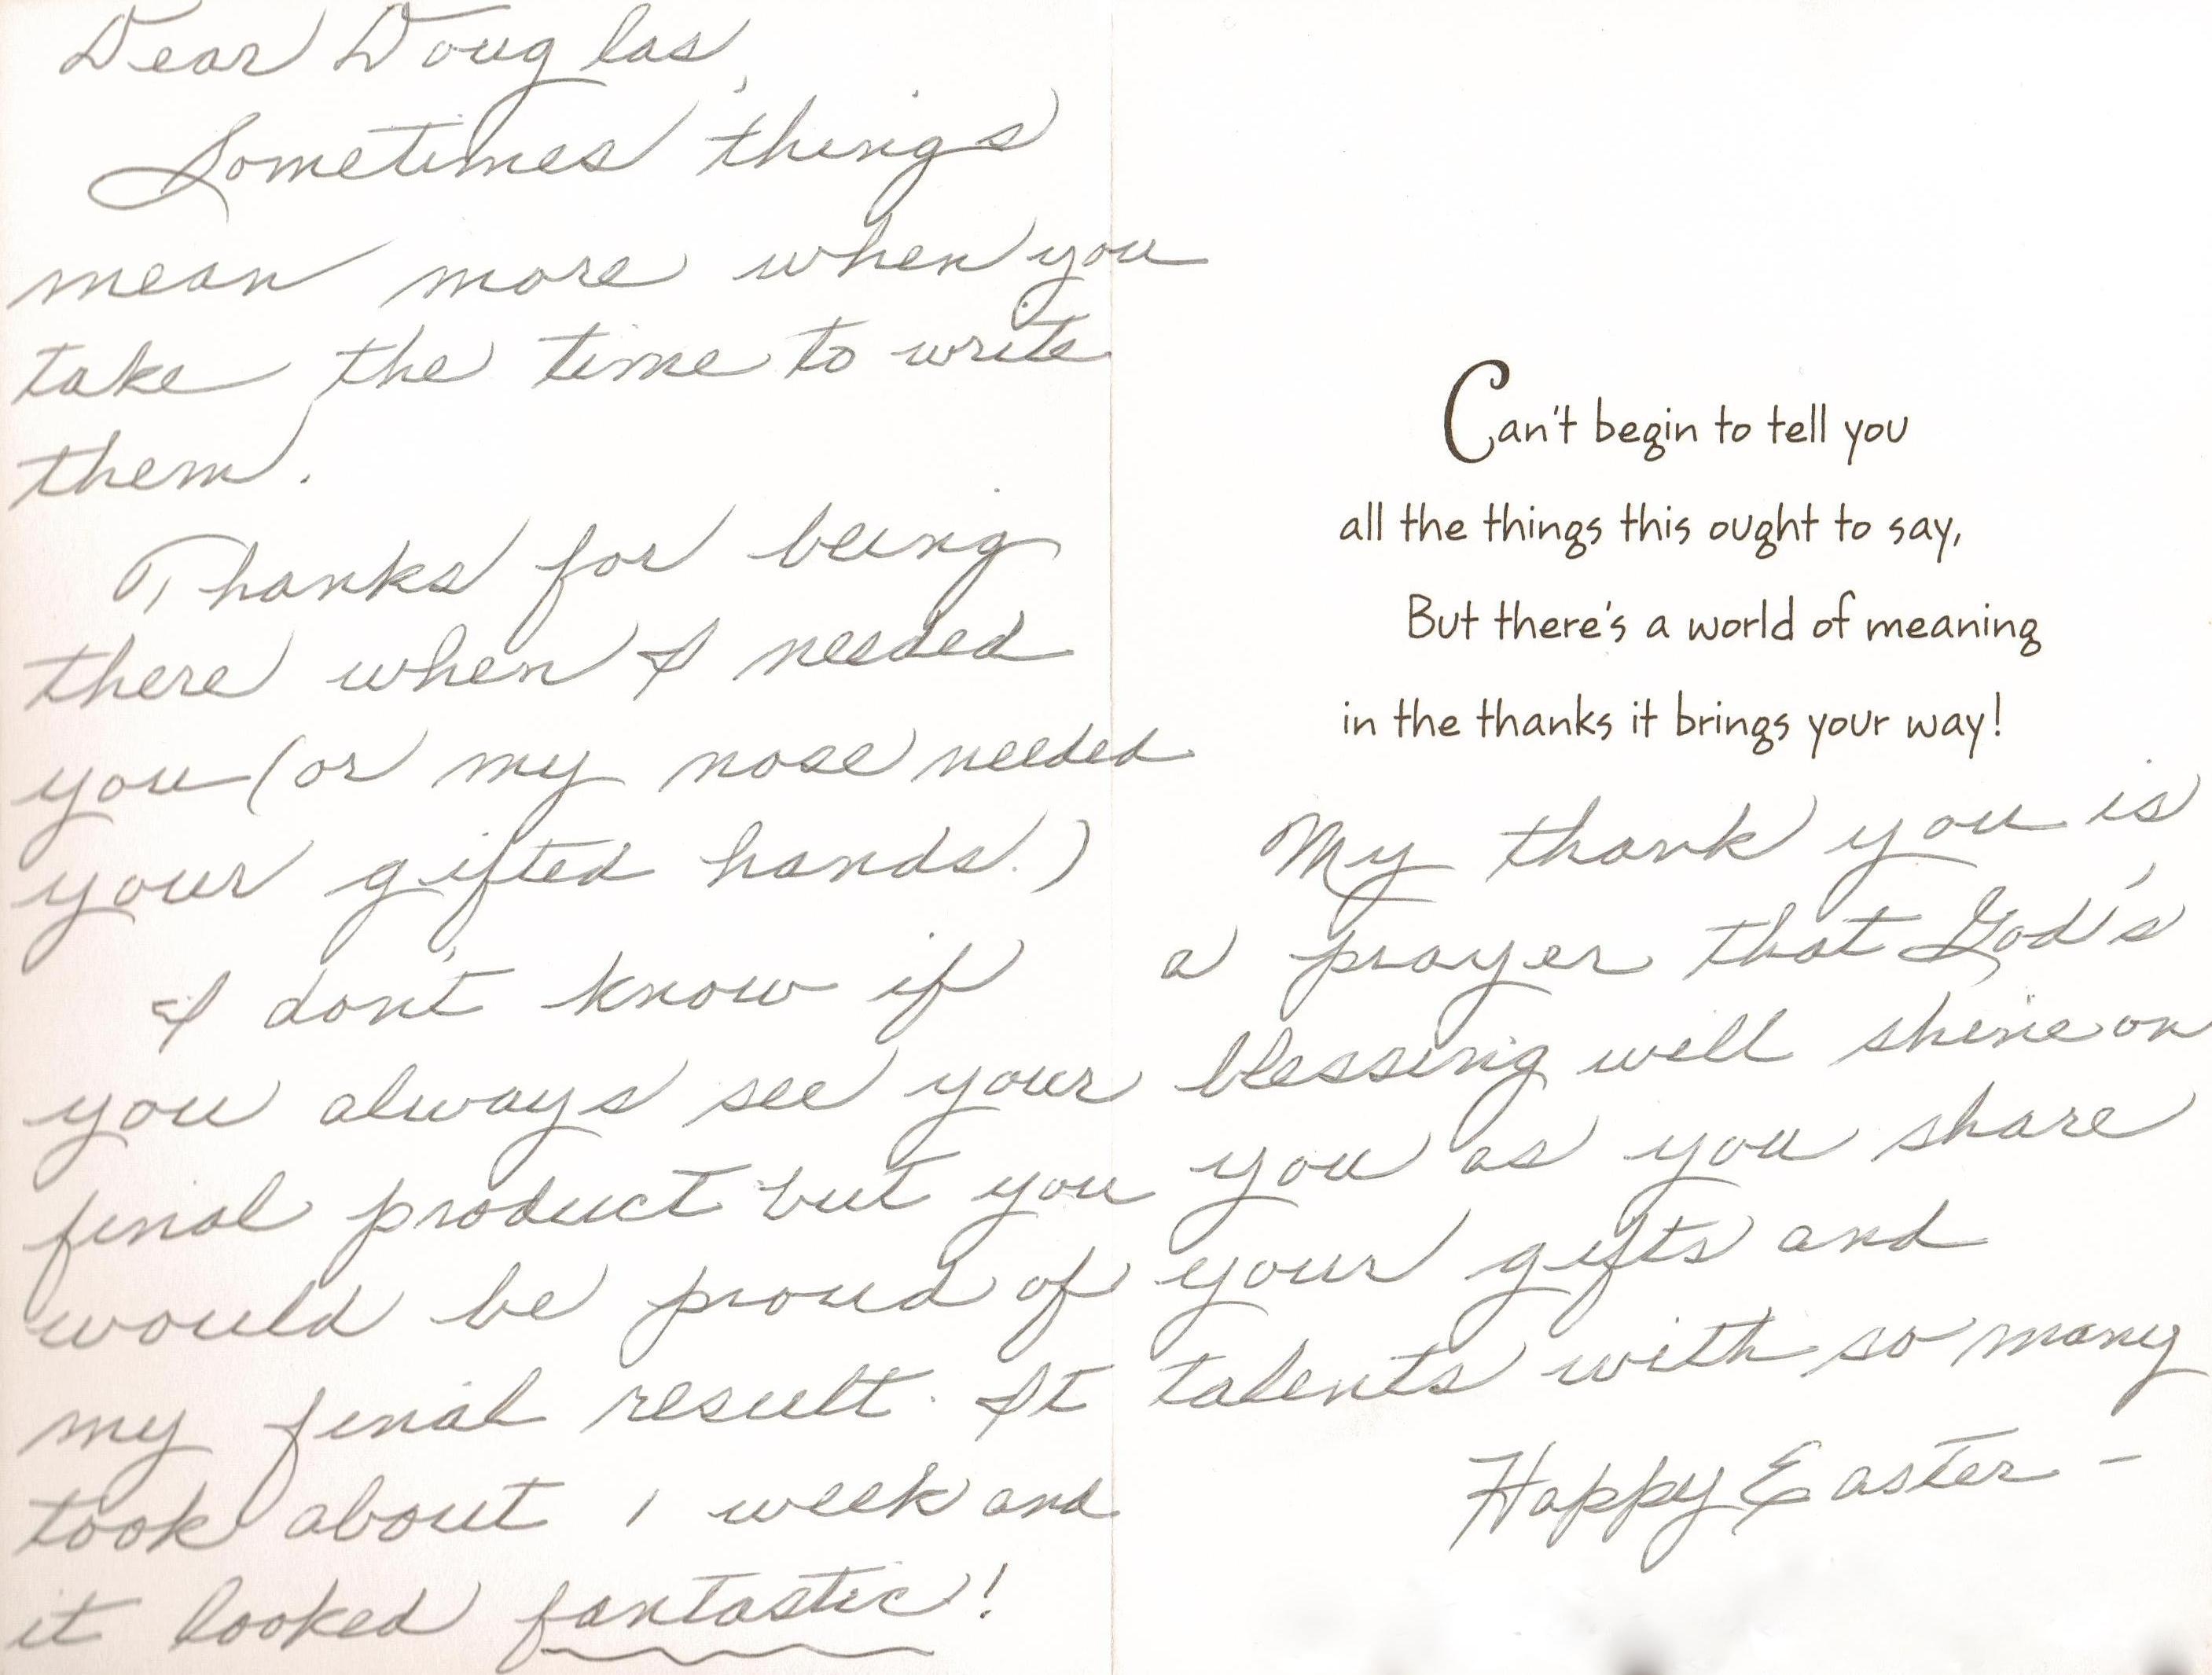 Dear Douglas,
Sometimes things
mean more when you
take the time to write
them.
Thanks for being
there when I needed
you (or my nose needed
your gifted hands.)
I don't know if
you always see your
final product but you
would be proud of
my final result. It
took about 1 week and
it looked fantastic!
Can't begin to tell you
all the things this ought to say,
But there's a world of meaning
in the thanks it brings your way!
My thank you is
a prayer that God's
blessing will shine on
you as you share
your gifts and
talents with so many
Happy Easter -